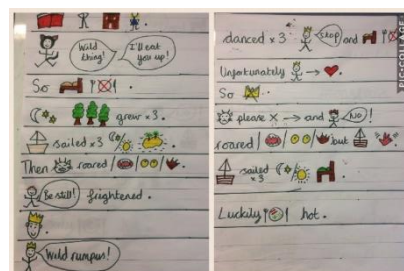 Wild thing! I'll eat you up!
So
grew x3.
sailed x3
Then roared
Be still! frightened.
Wild rumpus!
danced x3 stop and
Unfortunately
So
please x and No!
roared but
sailed x3
Luckily hot.
PIC•COLLAGE